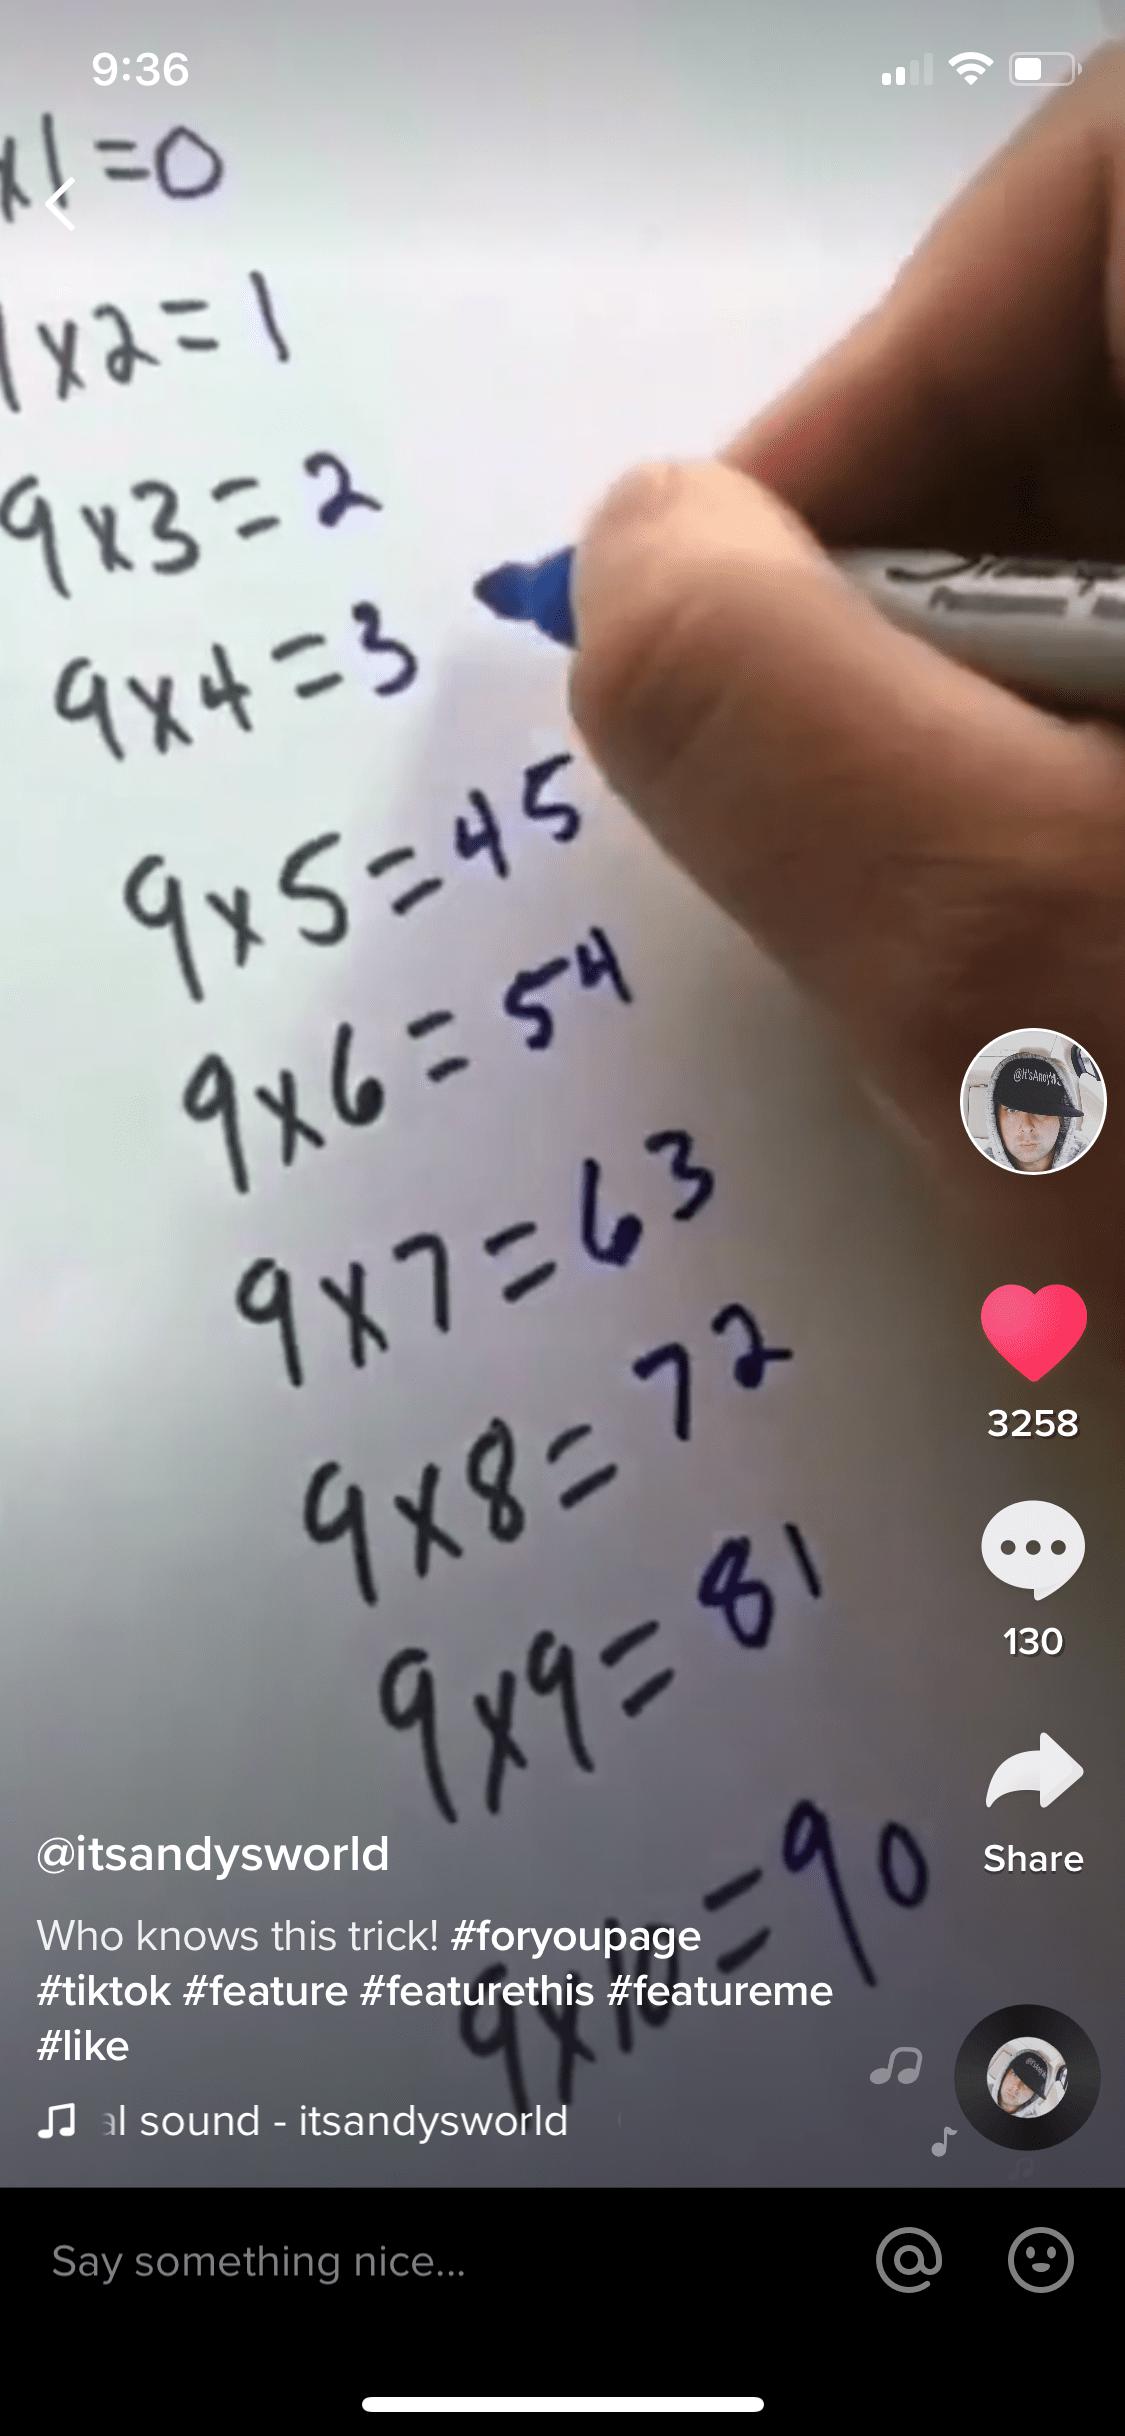 9:36
x1=0
1x2=1
9x3=2
9x4=3
9x5=45
9x6=54
9x7=63
9x8=72
9x9=81
9x10=90
3258
130
Share
@itsandysworld
Who knows this trick! #foryoupage
#tiktok #feature #featurethis #featureme
#like
al sound - itsandysworld
Say something nice...